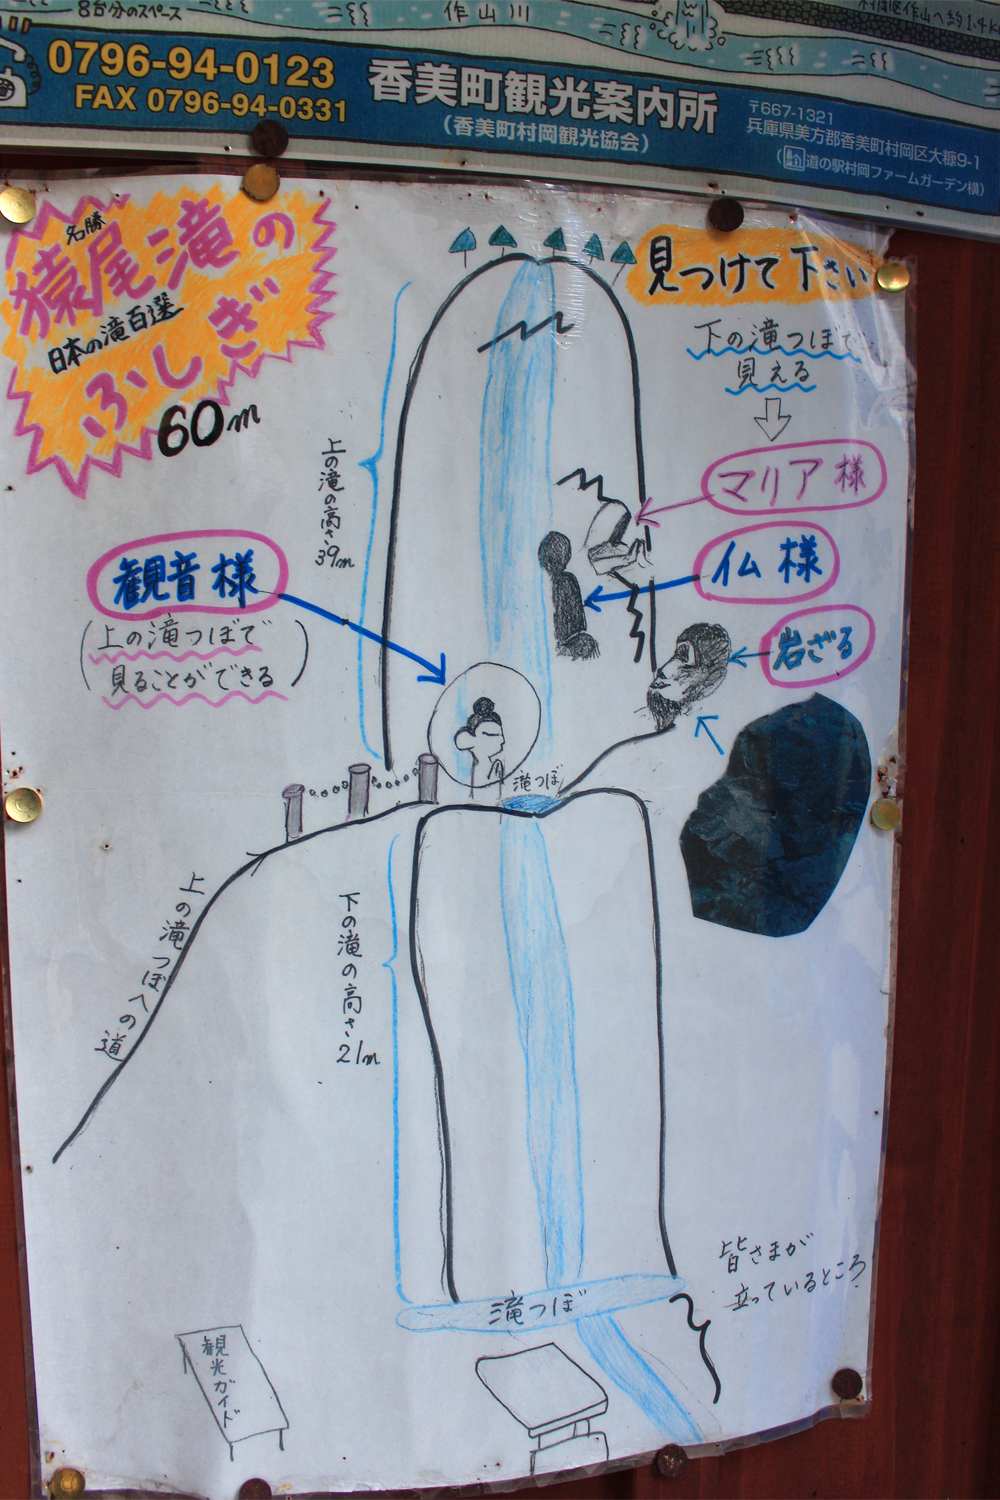 8台分のスペース
作山川
0796-94-0123
FAX 0796-94-0331
香美町観光案内所
(香美町村岡観光協会)
〒667-1321
兵庫県美方郡香美町村岡区大糠9-1
(道の駅村岡ファームガーデン横)
名勝
猿尾滝の
日本の滝百選
ふしぎ
60m
見つけて下さい
下の滝つぼで
見える
マリア様
仏様
岩ざる
上の滝の高さ39m
観音様
(上の滝つぼで
見ることができる)
滝つぼ
上の滝つぼへの道
下の滝の高さ21m
皆さまが
立っているところ
滝つぼ
観光ガイド